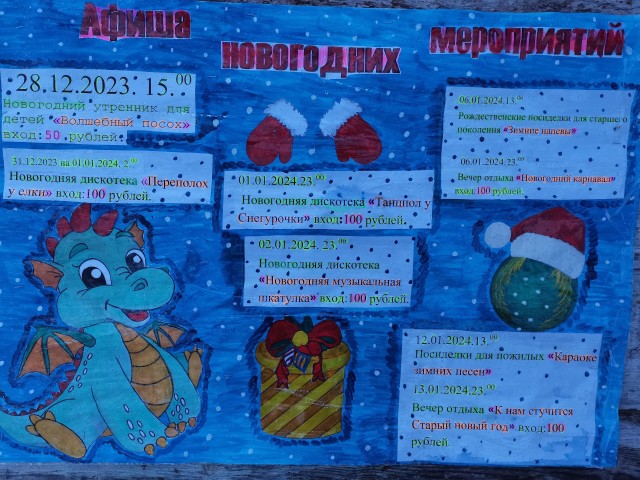 Афиша
новогодних
мероприятий
28.12.2023. 15.00
Новогодний утренник для
детей «Волшебный посох»
вход:50 рублей.
31.12.2023 на 01.01.2024. 2.00
Новогодняя дискотека «Переполох
у елки» вход:100 рублей.
01.01.2024.23.00
Новогодняя дискотека «Танцпол у
Снегурочки» вход:100 рублей.
02.01.2024. 23.00
Новогодняя дискотека
«Новогодняя музыкальная
шкатулка» вход:100 рублей.
06.01.2024.13.00
Рождественские посиделки для старшего
поколения «Зимние напевы»
06.01.2024.23.00
Вечер отдыха «Новогодний карнавал»
вход:100 рублей.
12.01.2024.13.00
Посиделки для пожилых «Караоке
зимних песен»
13.01.2024.23.00
Вечер отдыха «К нам стучится
Старый новый год» вход:100
рублей.